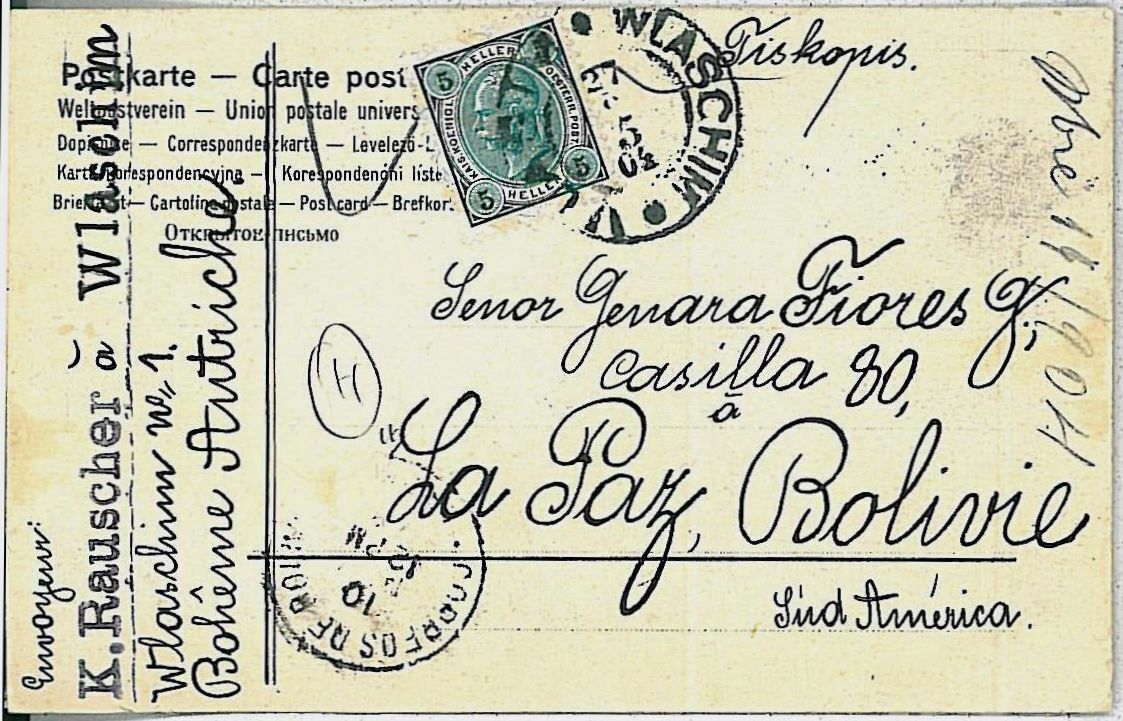 Postkarte — Carte post
Weltpostverein — Union postale univers
— Correspondenzkarte — Levelező-L
Karta korespondencyjna — Korespondenčni liste
— Cartolina postale — Post card — Brefkor
Открытое письмо
Tiskopis.
5 HELLER 5
KAIS. KOENIGL. OESTERR. POST.
5 HELLER 5
WLASCHIM
5
04
9bre 14/904
Senor Genara Fiores G,
Casilla 80,
à
La Paz, Bolivie
Süd América.
CORREOS DE BOLIV
10
12 PM
Envoyeur:
K. Rauscher à Wlaschim
Wlaschim No 1.
Bohême Autriche.